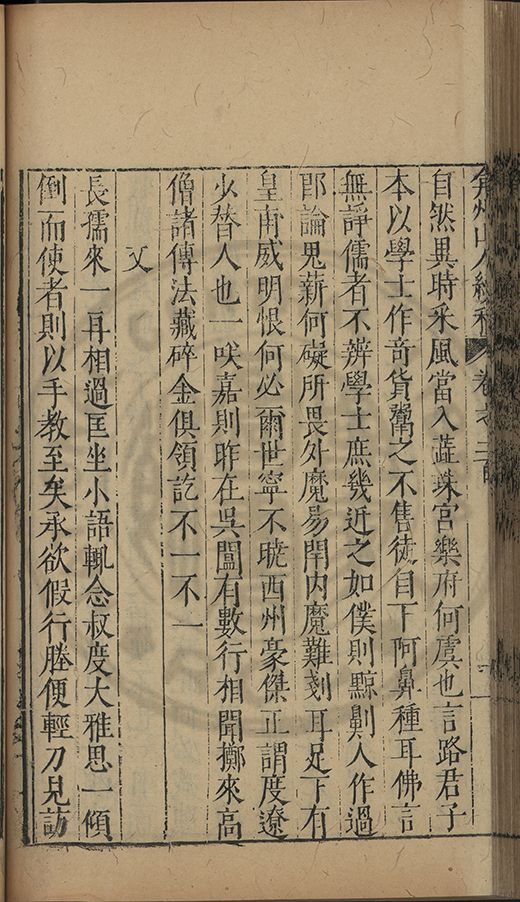 弇州山人續稿 卷之二百
自然異時采風當入蕋珠宮樂府何虞也言路君子
本以學士作奇貨鬻之不售徒自下阿鼻種耳佛言
無諍儒者不辨學士庶幾近之如僕則黥劓人作過
即論鬼薪何礙所畏外魔易閈內魔難刻耳足下有
皇甫威明恨何必爾世寧不曉西州豪傑正謂度遼
少替人也一咲嘉則昨在吳閶有數行相聞擲來高
僧諸傳法藏碎金俱領訖不一不一
又
長孺來一耳相過匡坐小語輒念叔度大雅思一傾
倒而使者則以手教至矣承欲假行塍便輕刀見訪